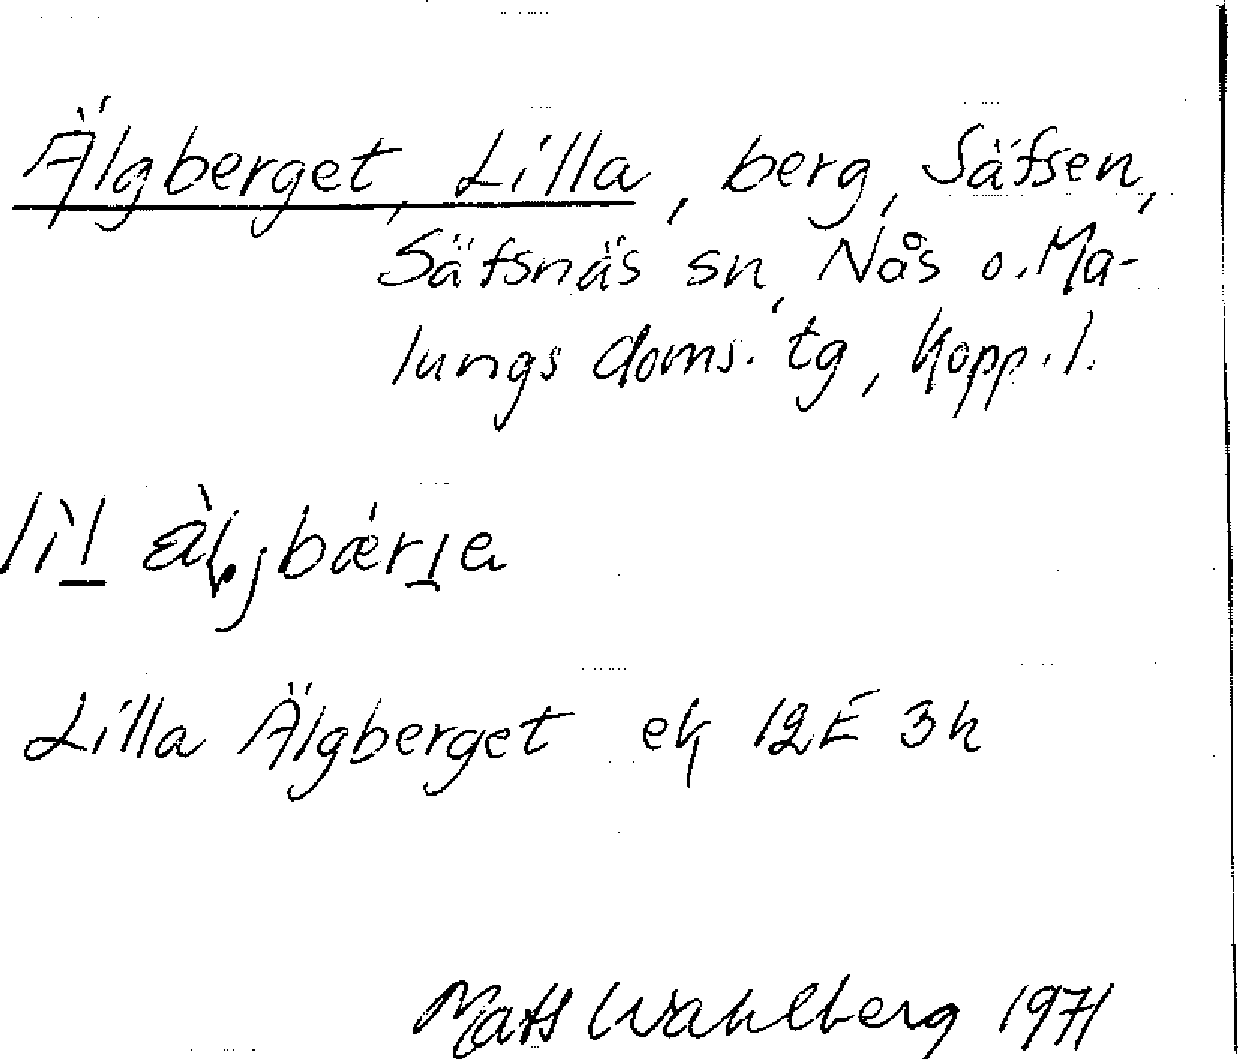 Älgberget, Lilla, berg, Säfsen,
Säfsnäs sn, Nås o. Ma-
lungs doms. tg, Kopp. l.
Lilla Älgberget ek 12E 3h
Mats Wahlberg 1971